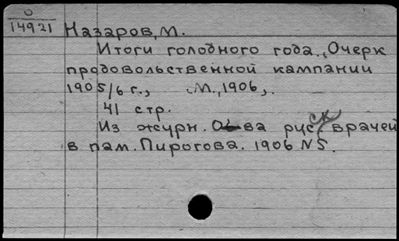 О
14921
Назаров, М.
Итоги голодного года., Очерк
продовольственной кампании
1905/6 г., М., 1906,.
41 стр.
Из журн. О-ва русск врачей
в пам. Пирогова. 1906 N5.